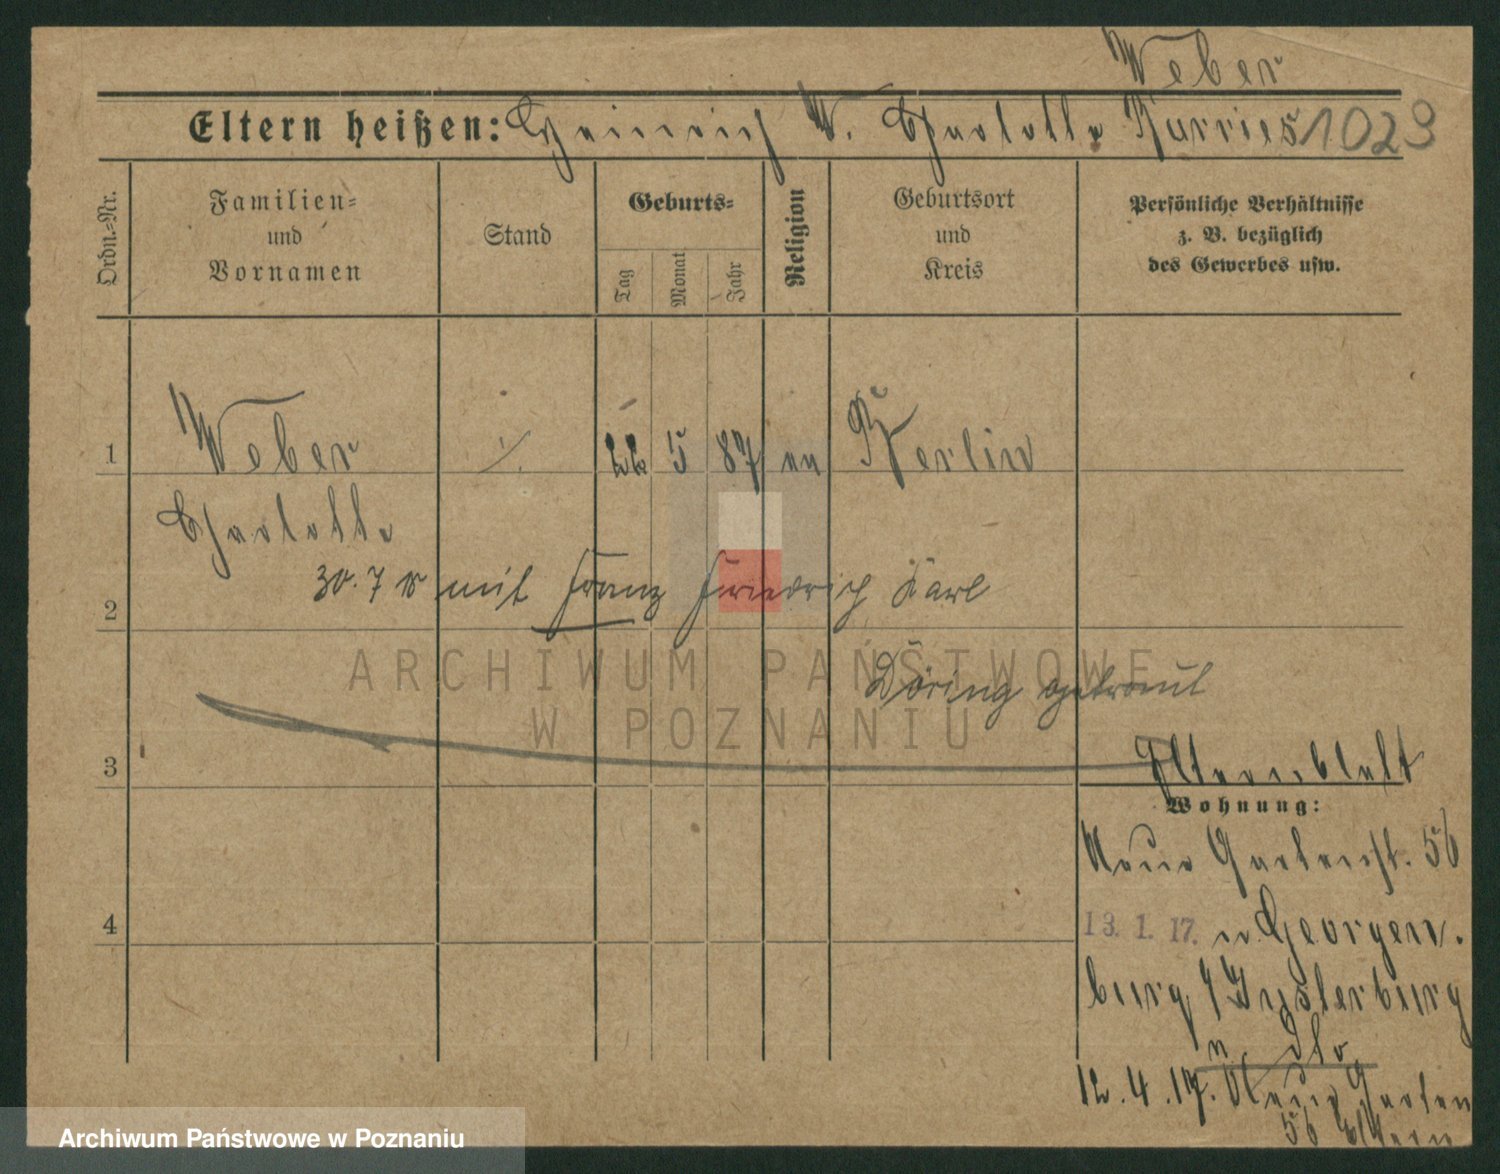 Weber
Eltern heißen: Heinrich W. Charlotte Kurries 1023
Ordn.-Nr.
Familien- und Vornamen
Stand
Geburts-
Tag
Monat
Jahr
Religion
Geburtsort und Kreis
Persönliche Verhältnisse z. B. bezüglich des Gewerbes usw.
1 Weber ./. 22 5 87 ev Berlin
Charlotte
2 30. 7 18 mit Franz Friedrich Karl
Döring getraut
ARCHIWUM PAŃSTWOWE
W POZNANIU
3 Elternblatt
Wohnung:
Neue Gartenst. 56
4 13. 1. 17. n. Georgen-
burg / Insterburg
12. 4. 17. Neue Garten
56 Eltern
Archiwum Państwowe w Poznaniu